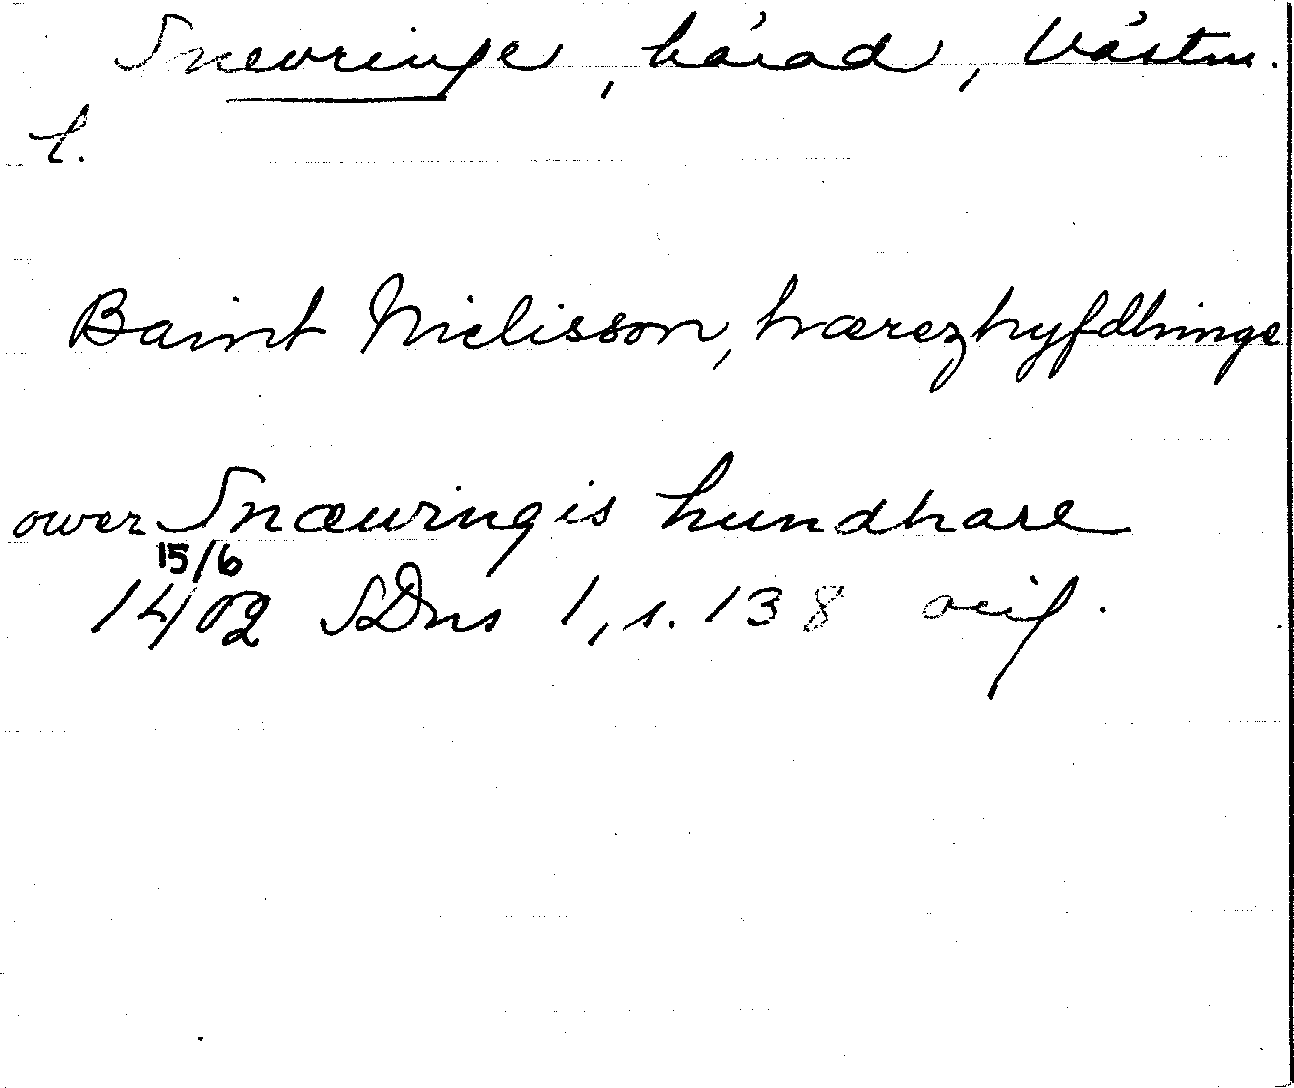 Snevringe, härad, Västm.
l.
Baint Niclisson, hærezhyfdhinge
ower Snæwringis hundhare
15/6
1402 SDns 1, s. 138 orig.